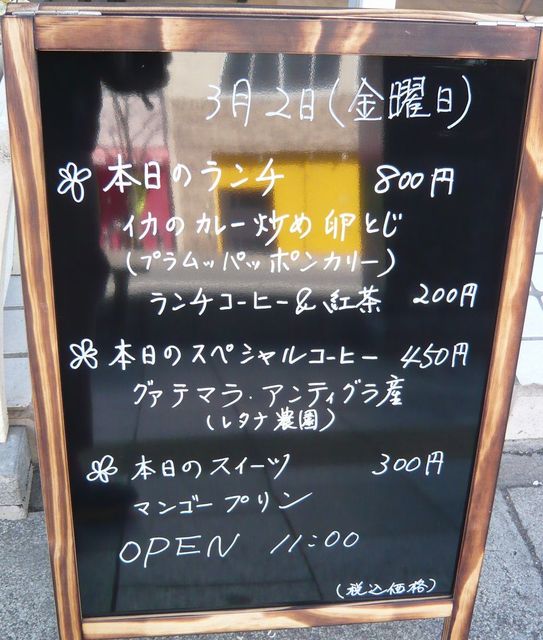 3月2日(金曜日)
本日のランチ 800円
イカのカレー炒め卵とじ
(プラムッパッポンカリー)
ランチコーヒー&紅茶 200円
本日のスペシャルコーヒー 450円
グァテマラ・アンティグラ産
(レタナ農園)
本日のスイーツ 300円
マンゴープリン
OPEN 11:00
(税込価格)